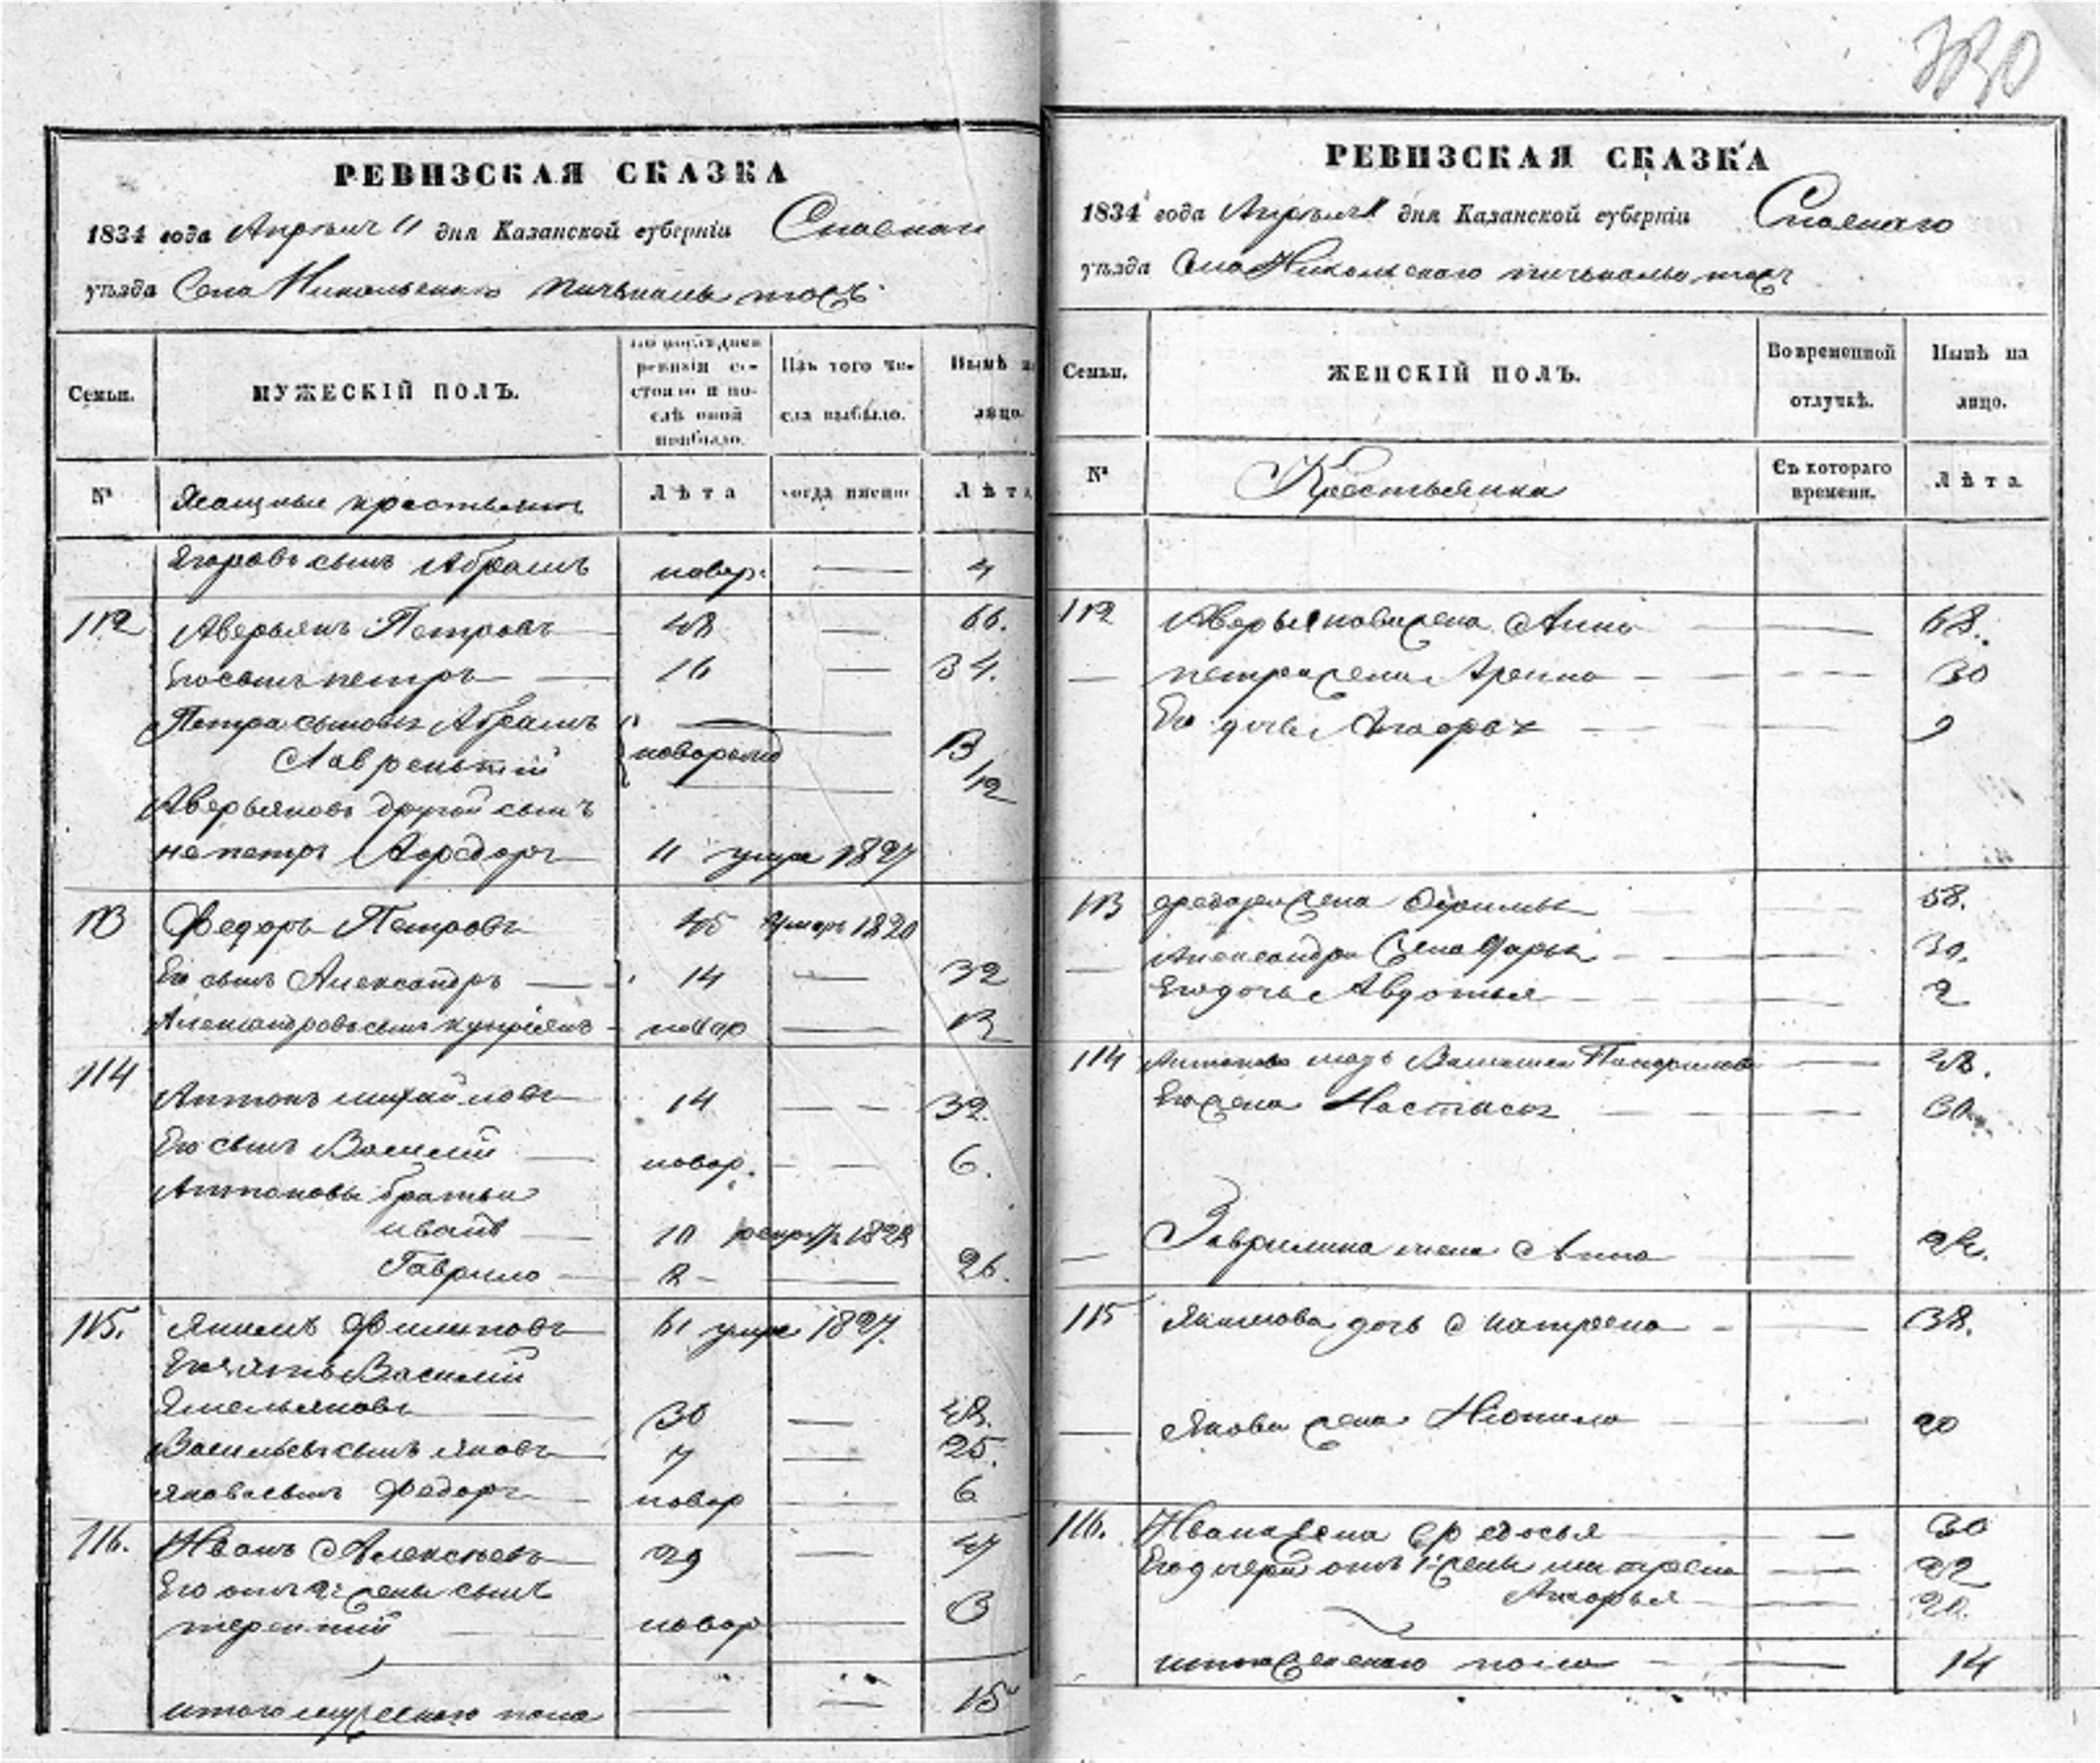 330
РЕВИЗСКАЯ СКАЗКА
1834 года Апреля 11 дня Казанской губерніи Спаскаго
уѣзда Села Никольского тожъ
Семьи.
МУЖЕСКІЙ ПОЛЪ.
По послѣдней ревизіи состояло и послѣ оной прибыло.
Изъ того числа выбыло.
Нынѣ на лицо.
№
Ясашные крестьяне
Лѣта
когда именно
Лѣта
Егоровъ сынъ Абрамъ новор: — 4
112 Аверьянъ Петровъ 48 — 66.
Его сынъ петръ 16 — 34.
Петра сыновья Абрамъ 13
Лаврентий новорожд 12
Аверьяновъ другой сынъ
петръ 11 умре 1827
113 Федоръ Петровъ 45 умеръ 1820
Его сынъ Александръ 14 — 32
Александровъ сынъ купріянъ новор — 13
114
Антонъ михайловъ 14 — 32.
Его сынъ Василий новор. — 6.
Антоновы братья
иванъ 10 рекрут 1828
Гаврило 8 — 26.
115. Якимъ Филиповъ 61 умре 1827.
Его зять Василий
Емельяновъ 30 — 48.
Васильевъ сынъ яковъ 7 — 25.
яковъ сынъ Федоръ новор — 6
116. Иванъ Алексѣевъ 29 — 47
Его отъ 2й жены сынъ
терентий новор — 3
итого мужескаго пола — — 15
РЕВИЗСКАЯ СКАЗКА
1834 года Апреля 11 дня Казанской губерніи Спаскаго
уѣзда Села Никольского тожъ
Семьи.
ЖЕНСКІЙ ПОЛЪ.
Во временной отлучкѣ.
Нынѣ на лицо.
№
Крестьянка
Съ котораго времени.
Лѣта
112 Аверьянова жена Анна — 68.
— петра жена Арина — 30
Его дочь — 9
113 федора жена — 58.
— Александра жена Дарья — 30.
Его дочь Авдотья — 2
114 Антонова мать — 48.
Его жена Настасья — 30
— Гаврилина жена Анна — 22.
115 Якимова дочь матрена — 38.
— Якова жена — 20
116. Ивана жена федосья — 30
Его дочери отъ 1й жены матрена — 22
Марья — 20.
итого женскаго пола — 14